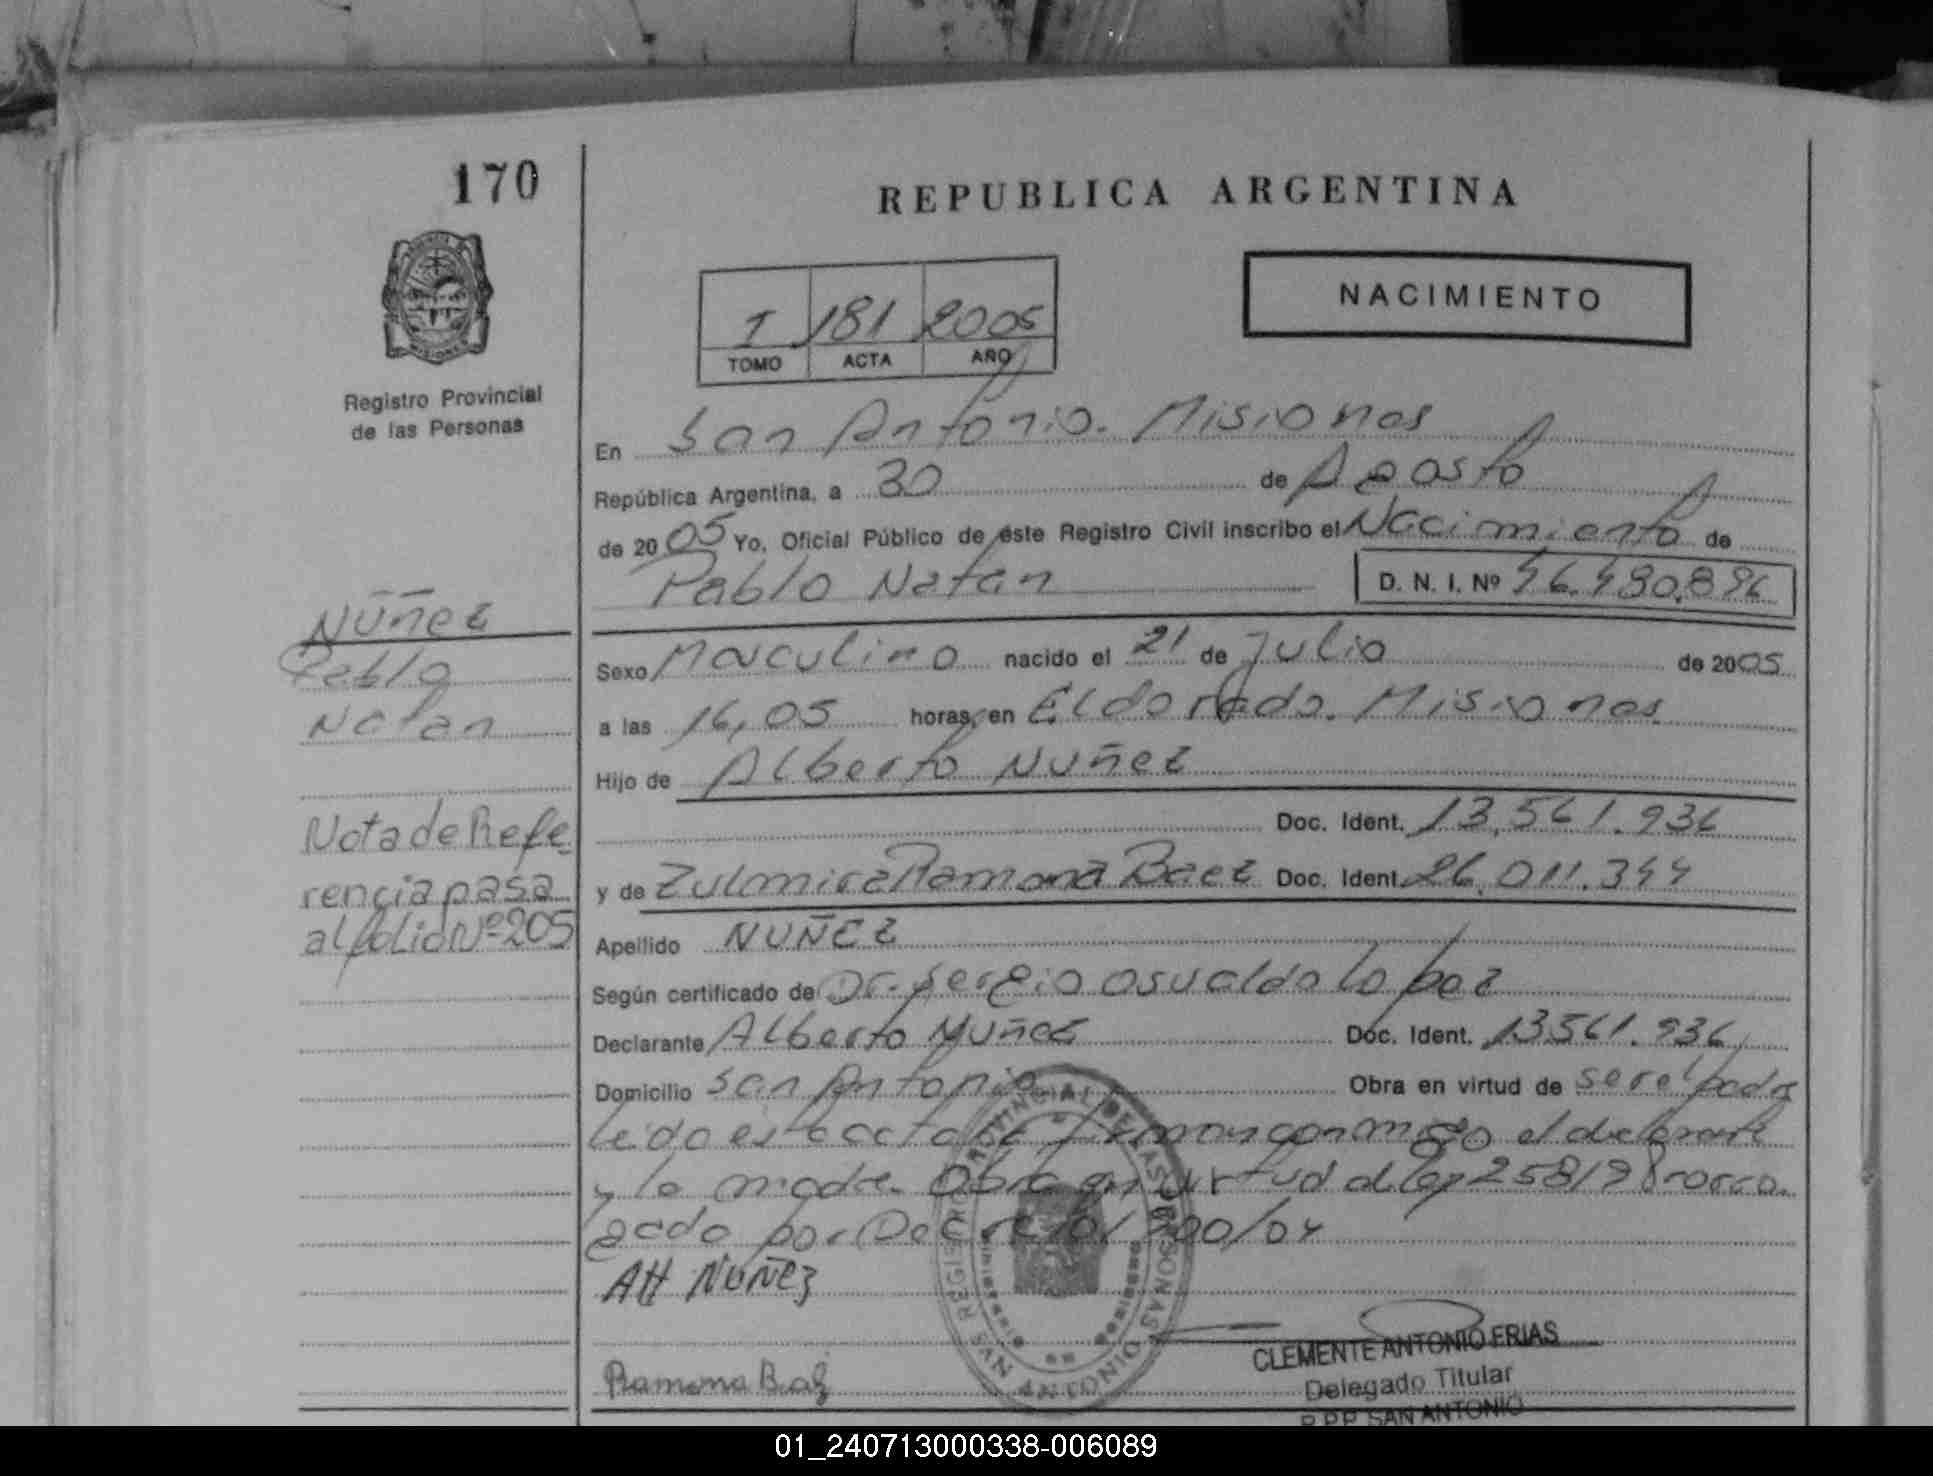 170
REPUBLICA ARGENTINA
NACIMIENTO
I 181 2005
TOMO ACTA AÑO
MISIONES
Registro Provincial
de las Personas
En San Antonio. Misiones
República Argentina, a 30 de Agosto
de 2005 Yo, Oficial Público de éste Registro Civil inscribo el Nacimiento de
Pablo Natan D. N. I. Nº 46.480.896
Núñez
Pablo
Natan
Sexo Masculino nacido el 21 de Julio de 2005
a las 16,05 horas, en Eldorado. Misiones
Hijo de Alberto Nuñez
Doc. Ident. 13.561.936
y de Zulmira Ramona Baez Doc. Ident. 26.011.344
Nota de Refe
rencia pasa
al folio Nº 205
Apellido NUÑEZ
Según certificado de Dr. Sergio Osvaldo Lopez
Declarante Alberto Nuñez Doc. Ident. 13561.936
Domicilio San Antonio Obra en virtud de
leido el acta firman conmigo el declarante
y la madre. Obra en virtud al ley 25819 Prorro
gado por Decreto
AH NUÑEZ
Ramona Baez
REGISTRO PROVINCIAL DE LAS PERSONAS
SAN ANTONIO
CLEMENTE ANTONIO FRIAS
Delegado Titular
R.P.P. SAN ANTONIO
01_240713000338-006089